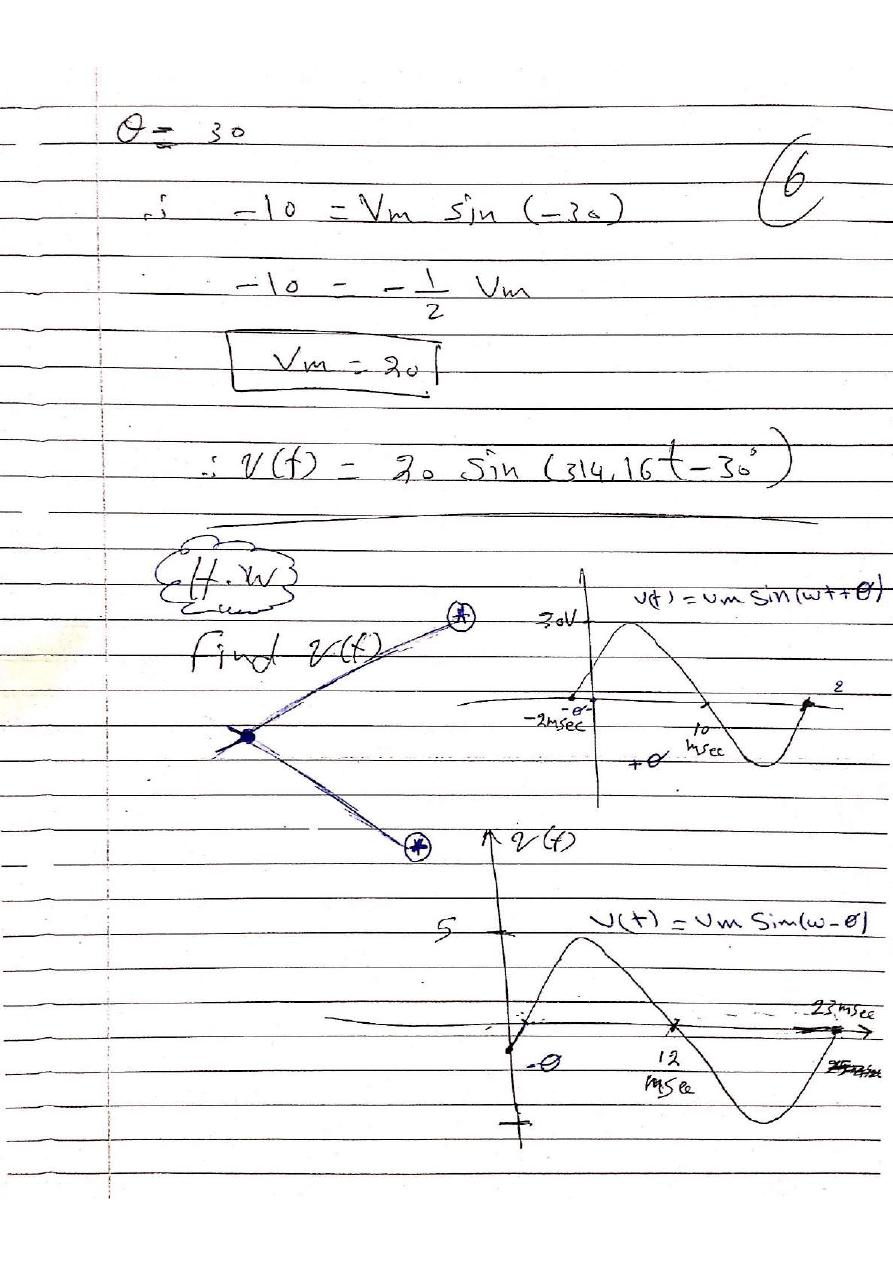 θ = 30
6
∴ -10 = Vm sin (-30)
-10 = - 1/2 Vm
Vm = 20
∴ v(t) = 20 sin (314.16t - 30°)
H.W
Find v(t)
v(t) = Vm sin(wt + θ)
30V
2
-θ-
-2msec
10
msec
+θ
v(t)
v(t) = Vm Sin(w-θ)
5
23msec
-θ
12
msec